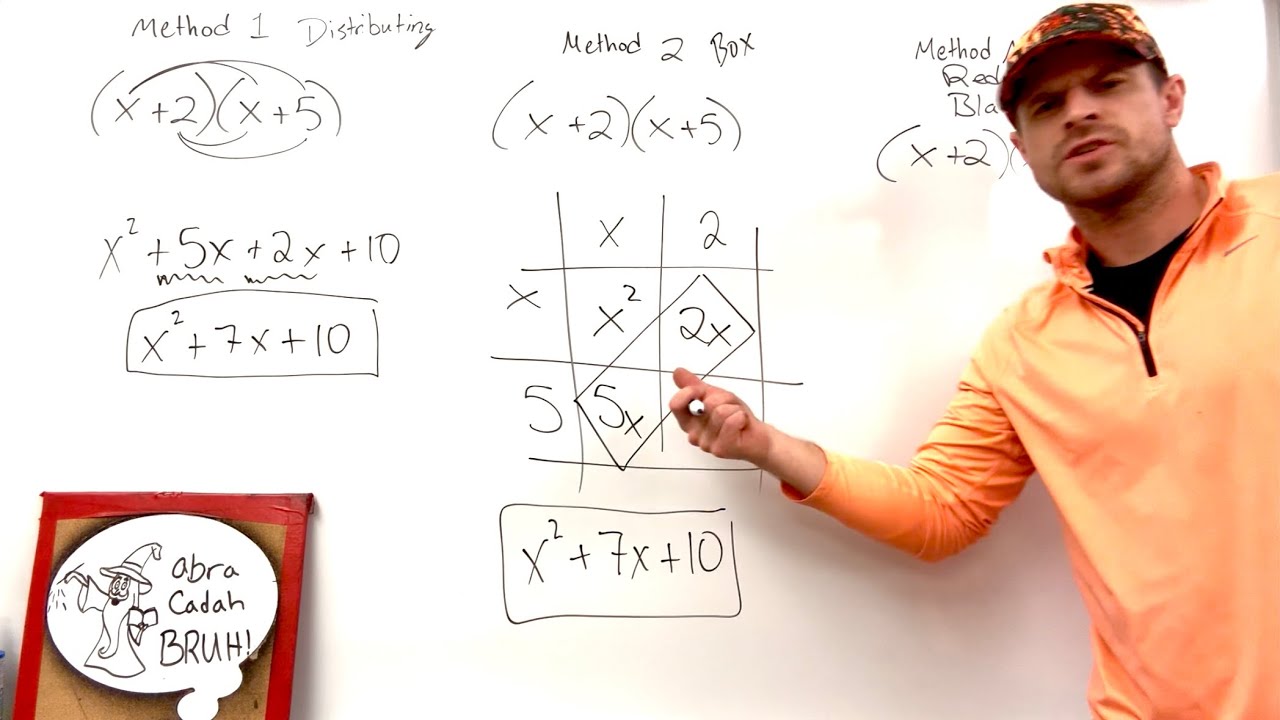 Method 1 Distributing
(x+2)(x+5)
x² + 5x + 2x + 10
x² + 7x + 10
Method 2 Box
(x+2)(x+5)
x 2
x x² 2x
5 5x
x² + 7x + 10
Method
(x+2)(
abra
Cadah
BRUH!